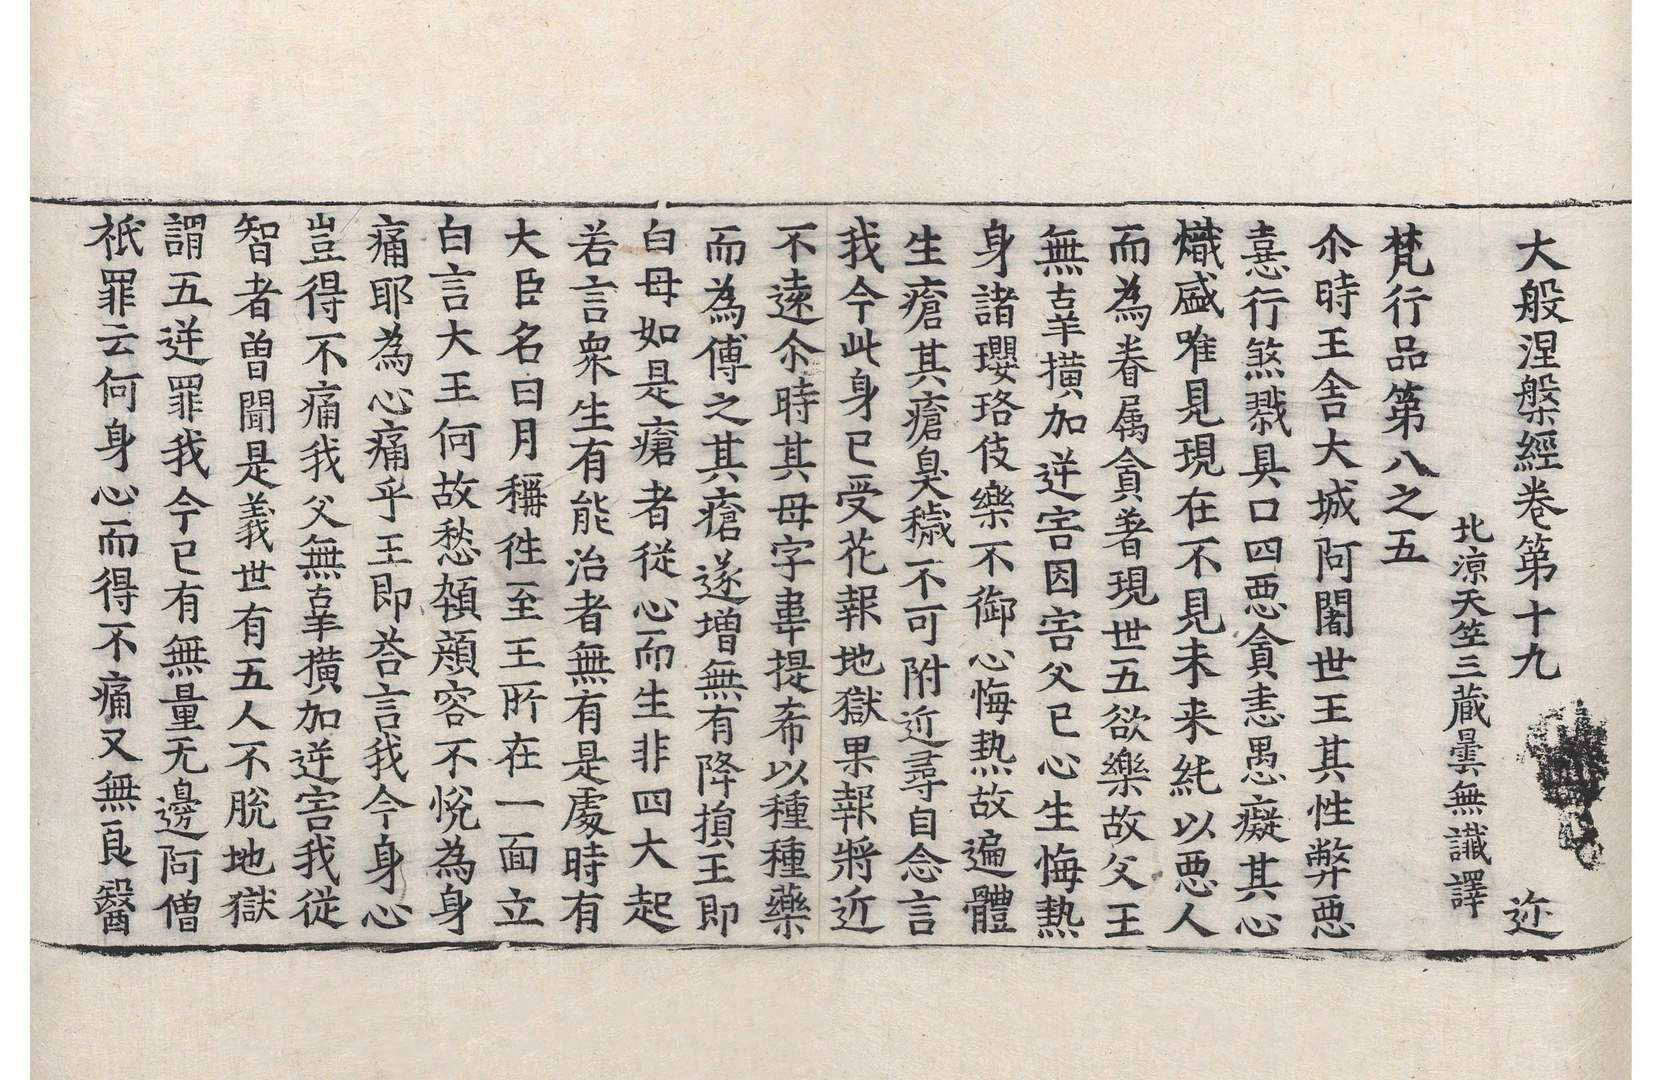 大般涅槃經卷第十九 迩
北涼天竺三藏曇無讖譯
梵行品第八之五
尒時王舍大城阿闍世王其性弊惡
憙行煞戮具口四惡貪恚愚癡其心
熾盛唯見現在不見未來純以惡人
而為眷属貪著現世五欲樂故父王
無辜撗加逆害因害父已心生悔熱
身諸瓔珞伎樂不御心悔熱故遍體
生瘡其瘡臭穢不可附近尋自念言
我今此身已受花報地獄果報將近
不遠尒時其母字韋提希以種種藥
而為傅之其瘡遂增無有降損王即
白母如是瘡者從心而生非四大起
若言衆生有能治者無有是處時有
大臣名曰月稱徃至王所在一面立
白言大王何故愁顇顔容不悅為身
痛耶為心痛乎王即荅言我今身心
豈得不痛我父無辜撗加逆害我從
智者曽聞是義世有五人不脫地獄
謂五逆罪我今已有無量无邊阿僧
祇罪云何身心而得不痛又無良醫